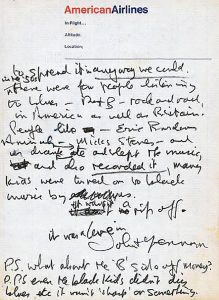 AmericanAirlines
In Flight...
Altitude;
Location;
to spread it in any way we could.
there were few people listening
to blues, – R+B – rock and roll,
in America as well as Britain.
People like – Eric Burdon
Animals – Micks Stones – and
us drank ate and slept the music,
and also recorded it, many
kids were turned on to black
music by us.
it wasn't a rip off.
it was a love in
John Lennon
P.S. what about the 'B' side of money?
P.P.S. even the black kids didn't dig
blues etc it wasn't 'sharp' or something.